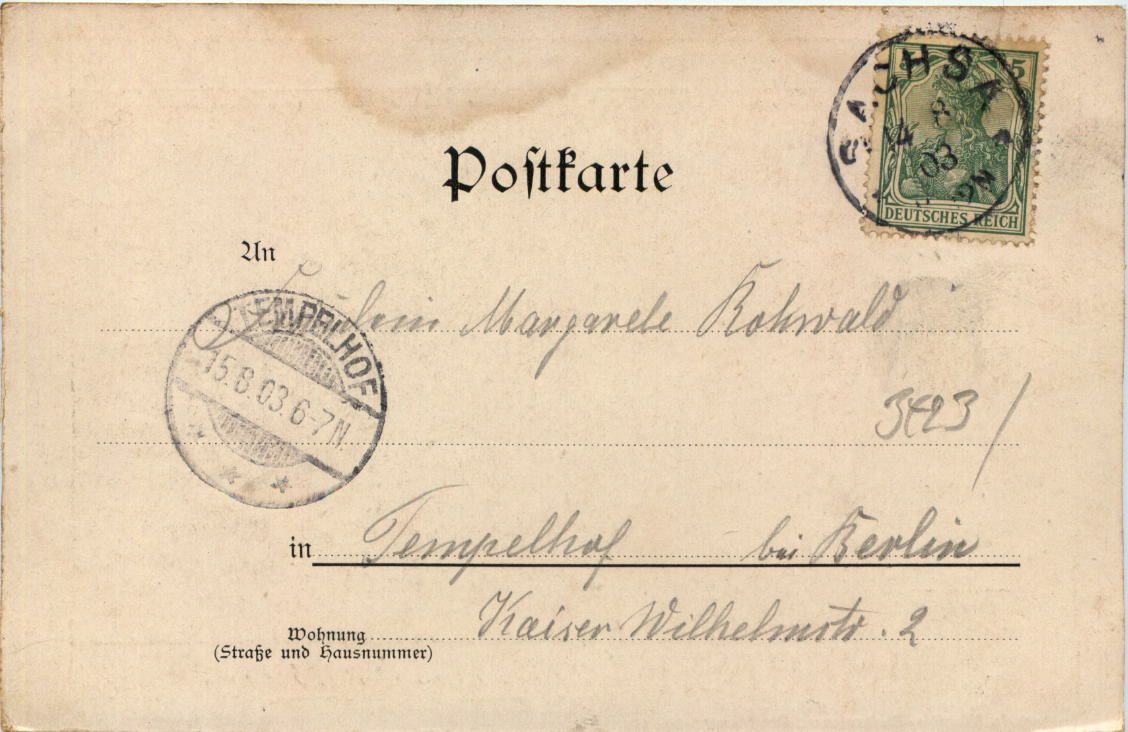 Postkarte
5 5
SACHSA
14 8
03
DEUTSCHES REICH
An
Fräulein Margarete Rohwald
TEMPELHOF
15.8.03.6-7N.
3423 /
in Tempelhof bei Berlin
Kaiser Wilhelmstr. 2
Wohnung
(Straße und Hausnummer)